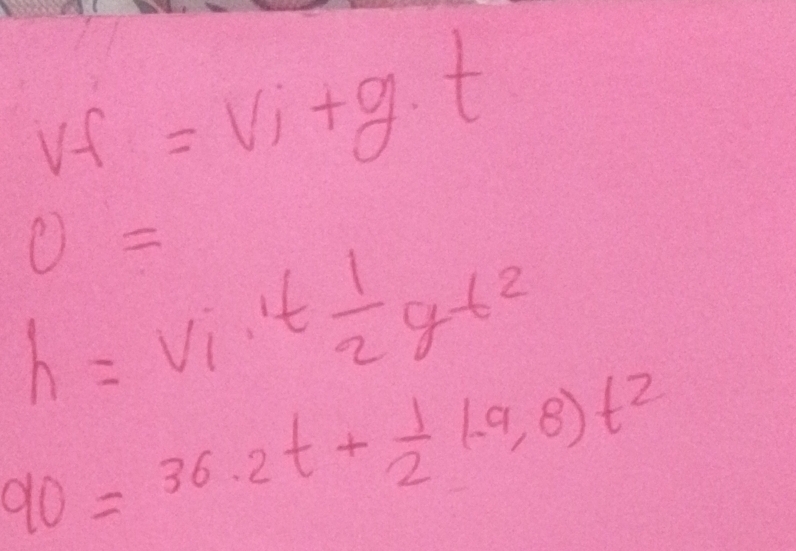 vf = Vi + g. t
0 =
h = Vi . t 1/2 gt²
90 = 36.2t + 1/2 (-9,8) t²